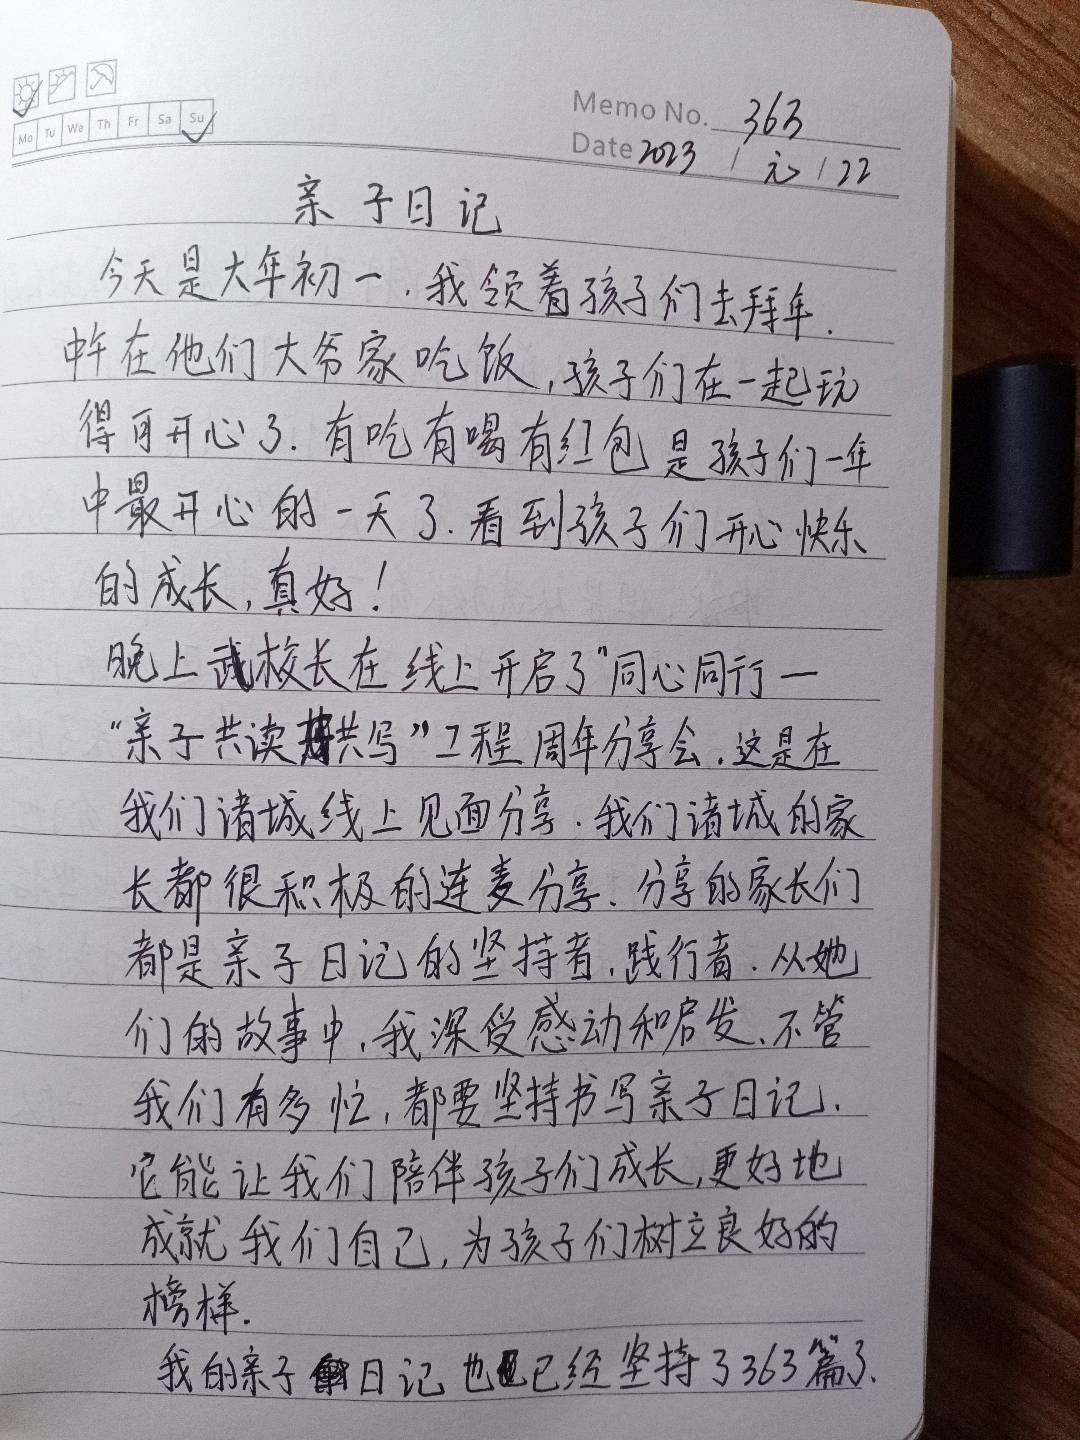 Mo Tu We Th Fr Sa Su
Memo No. 363
Date 2023 / 元 / 22
亲子日记
今天是大年初一.我领着孩子们去拜年.
中午在他们大爷家吃饭,孩子们在一起玩
得可开心了.有吃有喝有红包是孩子们一年
中最开心的一天了.看到孩子们开心快乐
的成长,真好!
晚上武校长在线上开启了"同心同行一
"亲子共读共写"工程周年分享会.这是在
我们诸城线上见面分享.我们诸城的家
长都很积极的连麦分享.分享的家长们
都是亲子日记的坚持者,践行者.从她
们的故事中,我深受感动和启发.不管
我们有多忙,都要坚持书写亲子日记.
它能让我们陪伴孩子们成长,更好地
成就我们自己,为孩子们树立良好的
榜样.
我的亲子日记也已经坚持了363篇了.